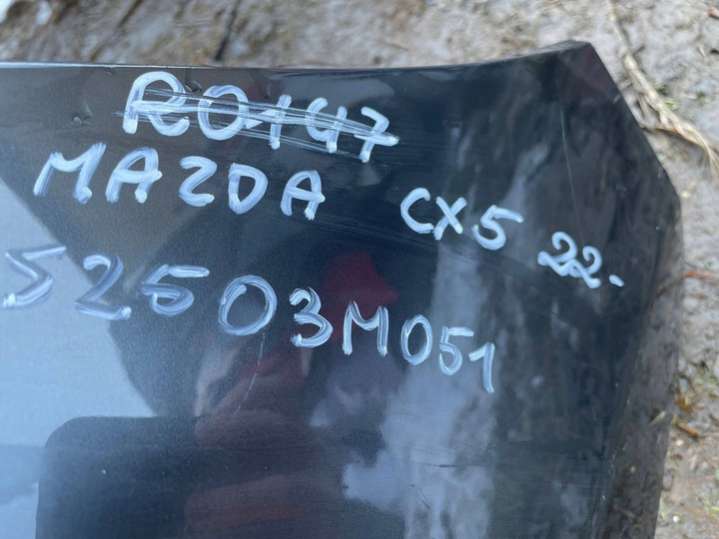 R0147
MAZDA CX5 22-
52603M051